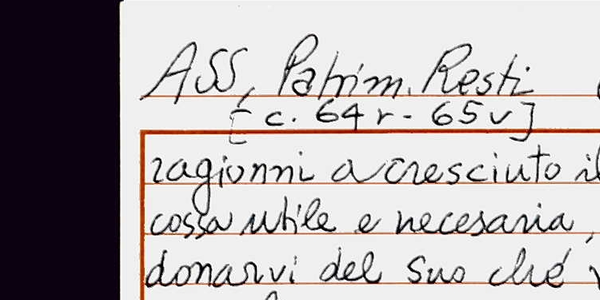 ASS, Patrim. Resti
[c. 64r - 65v]
ragionni a cresciuto il
cossa utile e necesaria,
donarvi del suo ché